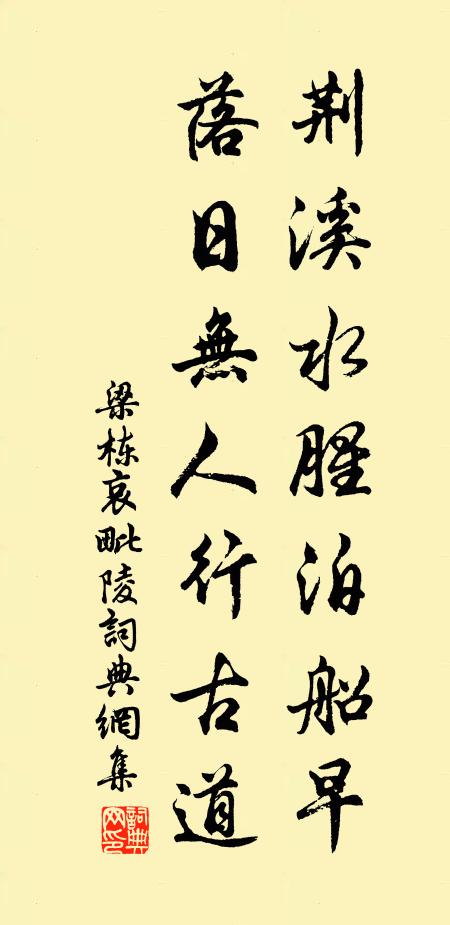 荆溪水腥泊船早
落日無人行古道
梁栋哀毗陵詞典網集
詞典网印